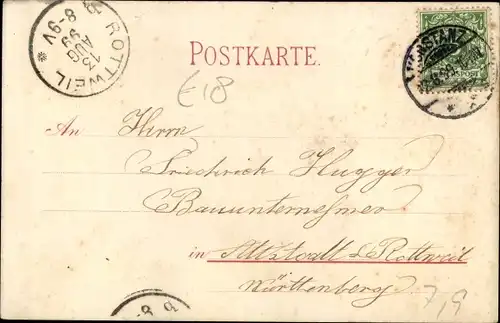 ROTTWEIL
13
AUG
99
8-9V
POSTKARTE.
KONSTANZ
E18
An Herrn
Friedrich Hugger
Bauunternehmer
in Altstadt Rottweil
Württemberg
7,9